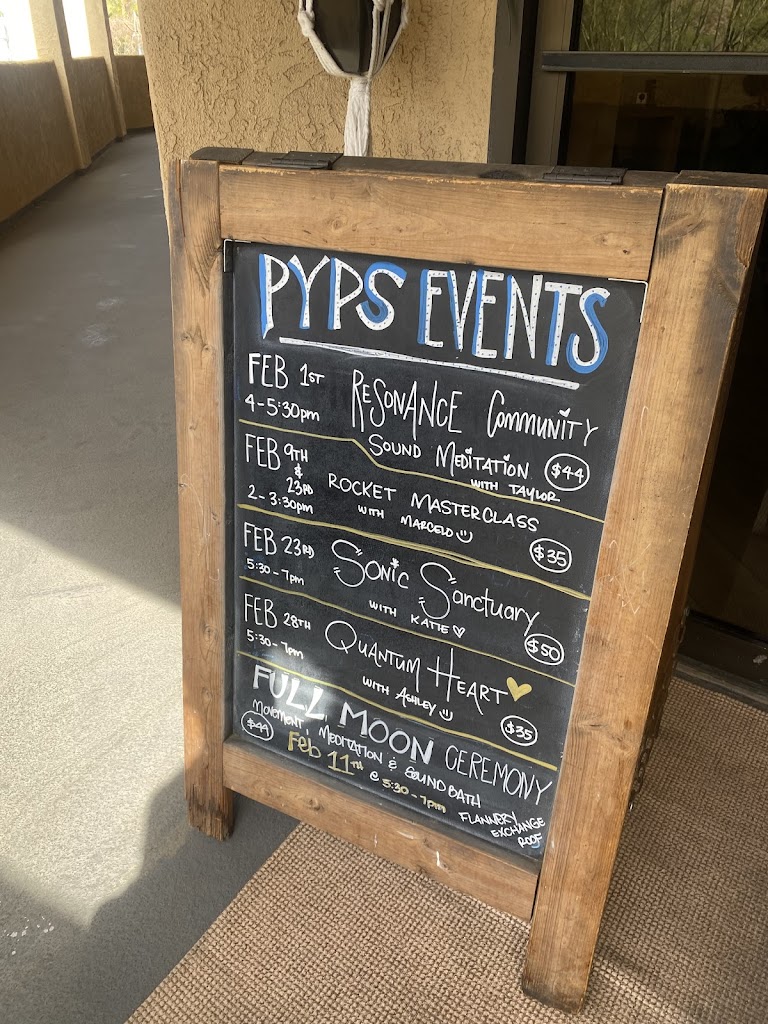 PYPS EVENTS
FEB 1ST
4-5:30pm
RESONANCE COMMUNITY
SOUND MEDITATION $44
WITH TAYLOR
FEB 9TH
&
23RD
2-3:30pm
ROCKET MASTERCLASS
WITH MARCELO
$35
FEB 23RD
5:30-7pm
SONIC SANCTUARY
WITH KATIE
$50
FEB 28TH
5:30-7pm
QUANTUM HEART
WITH ASHLEY
$35
FULL MOON CEREMONY
MOVEMENT, MEDITATION & SOUND BATH
$44
Feb 11TH @ 5:30-7pm
FLANNERY
EXCHANGE
ROOF